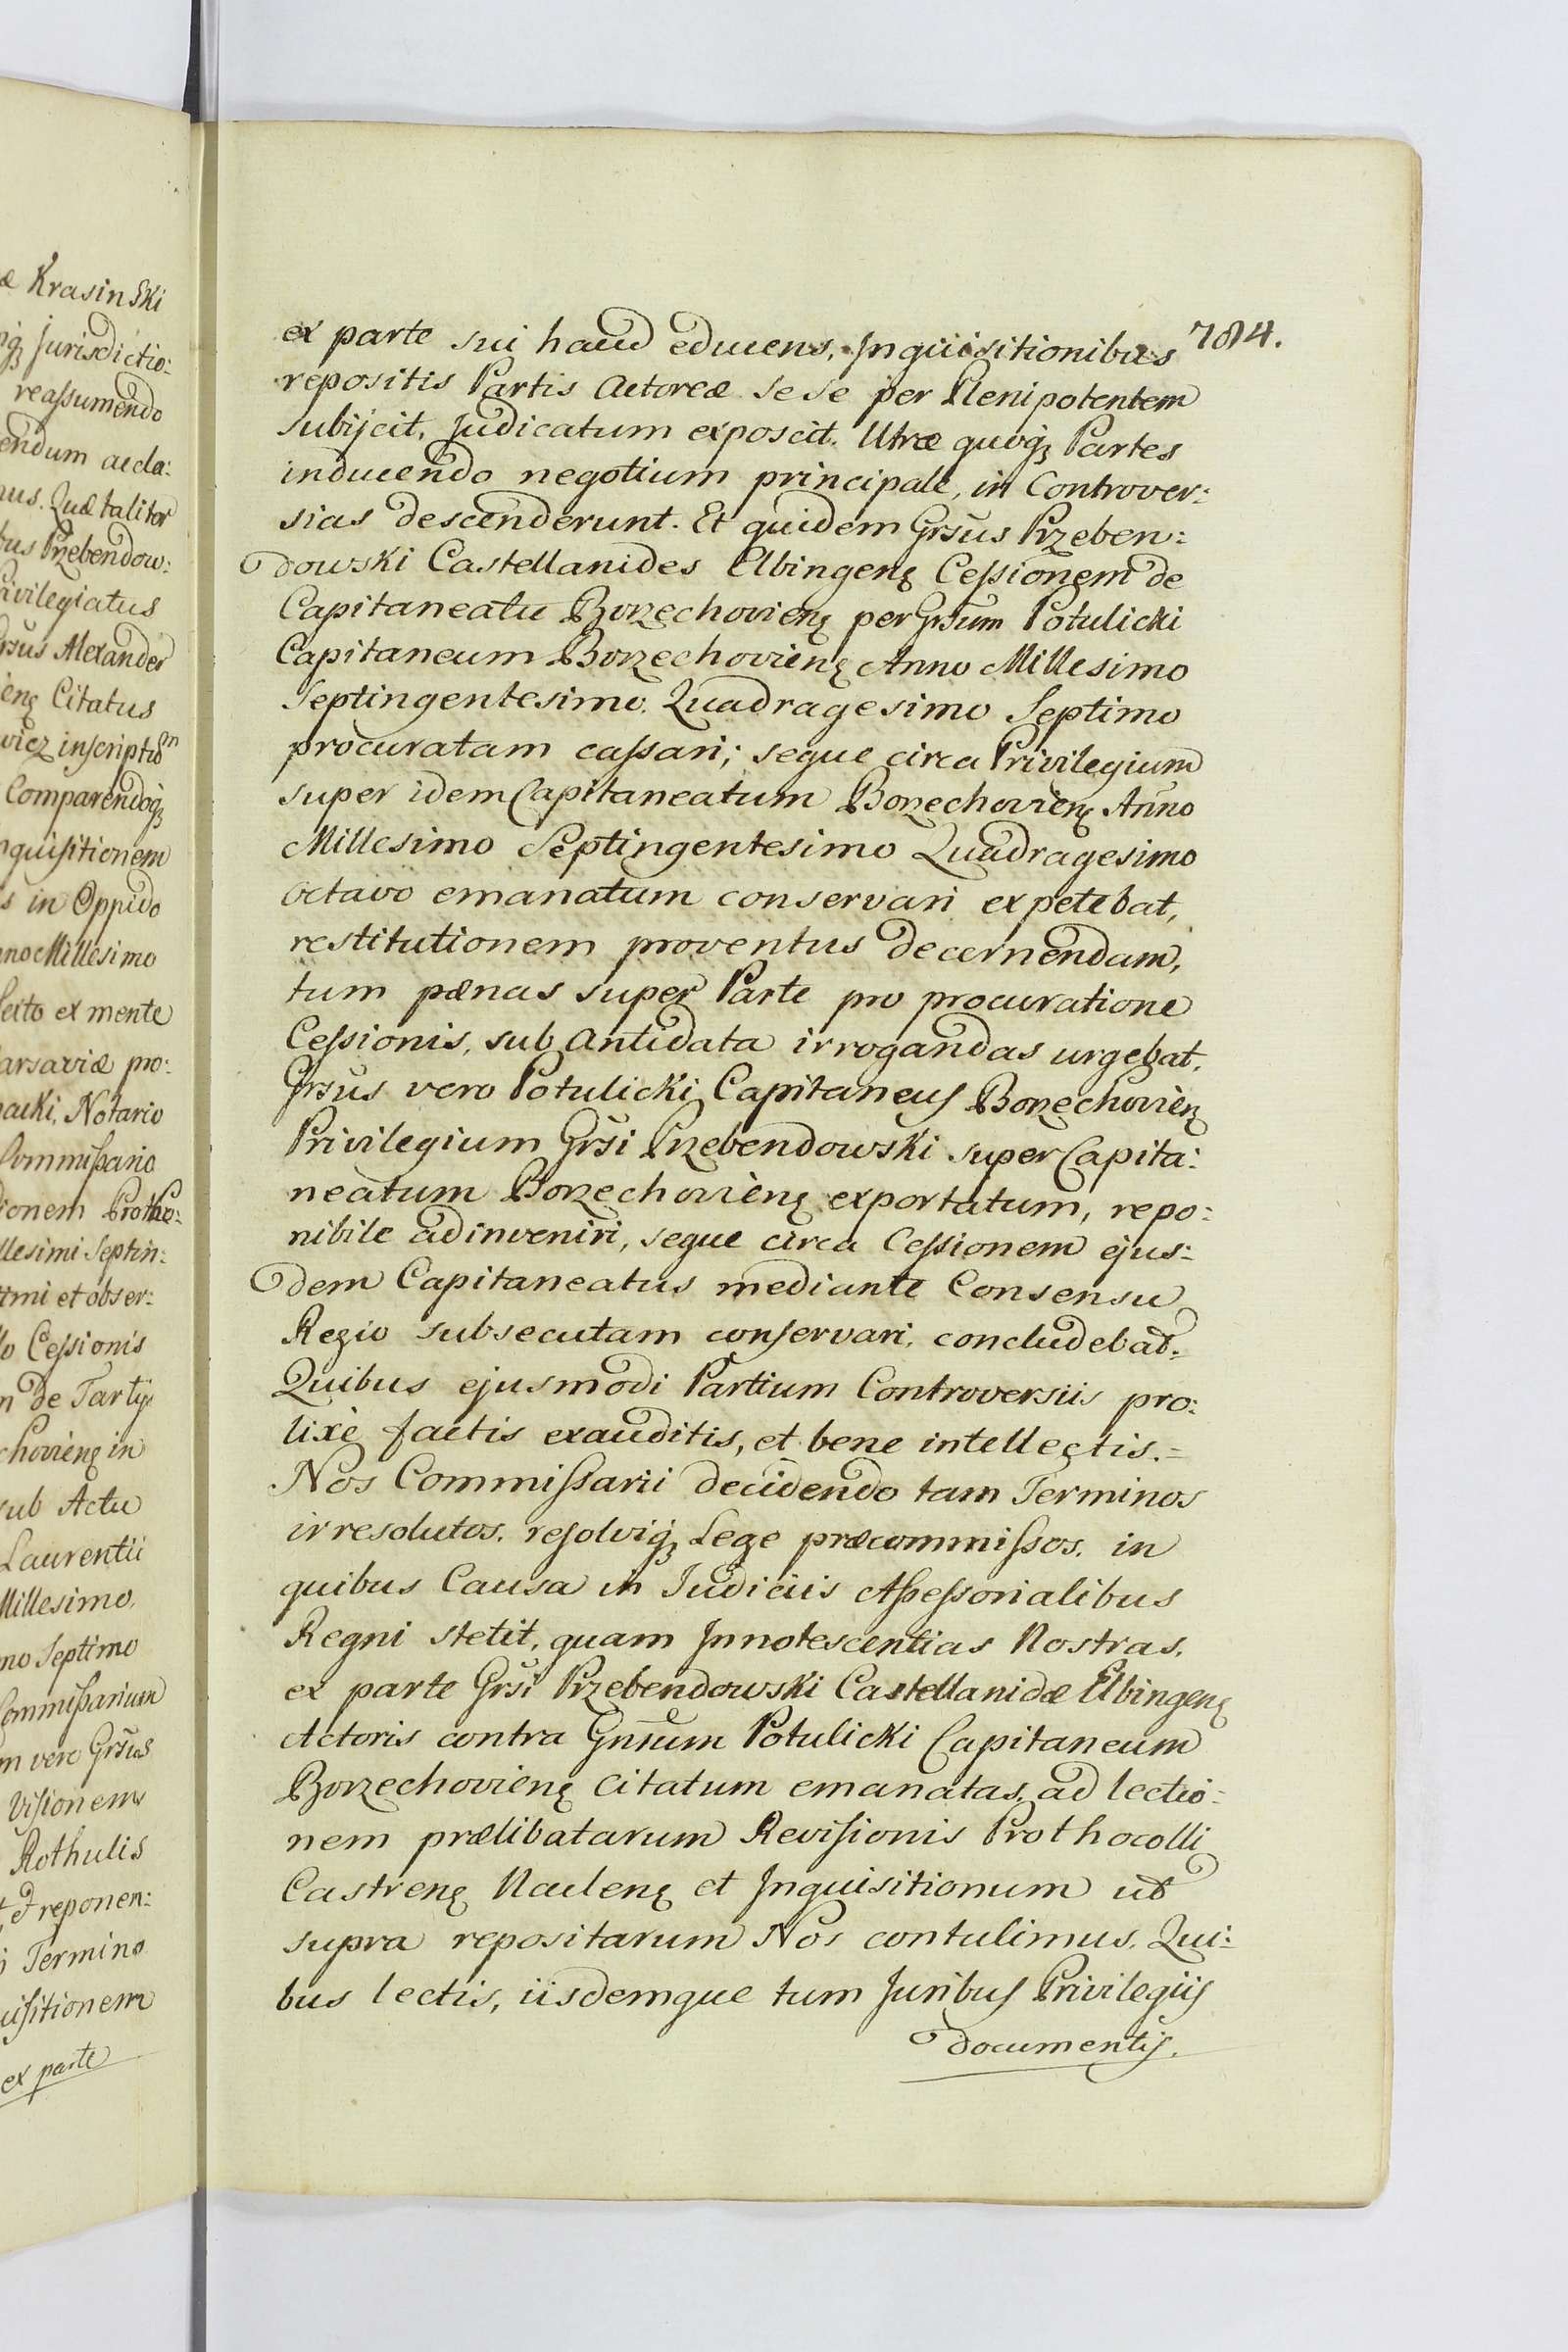 æ Krasinski
Jurisdictio:
reaſsumendo
endum accla:
Quæ taliter
Przebendow:
Privilegiatus
Alexander
Citatus
inscription
Comparendoq́ꝫ
in Oppido
Millesimo
ex mente
pro:
Notario
Commiſsario
Protho:
Septin:
et obser:
Ceſsionis
de
in
sub Actu
Laurentii
Millesimo,
Septimo
Commiſsarium
vero Grsũs
Visionem
Rothulis
et reponen:
Termino
ex parte
784.
ex parte sui haud educens, Inquisitionibus
repositis Partis Actoreæ se se per Plenipotentem
subijcit, Judicatum exposcit. Utræ quoq́ꝫ Partes
inducendo negotium principale, in Controver:
sias descenderunt. Et quidem Grsũs Przeben:
dowski Castellanides Elbingenꝫ Ceſsionem de
Capitaneatu Borzechovienꝫ per Grsũm Potulicki
Capitaneum Borzechovienꝫ Anno Millesimo
Septingentesimo Quadragesimo Septimo
procuratam caſsari; seque circa Privilegium
super idem Capitaneatum Borzechovienꝫ Anno
Millesimo Septingentesimo Quadragesimo
octavo emanatum conservari expetebat,
restitutionem proventus decernendam,
tum pænas super Parte pro procuratione
Ceſsionis, sub Antidata irrogandas urgebat.
Grsũs vero Potulicki Capitaneus Borzechovienꝫ
Privilegium Grsĩ Przebendowski super Capita:
neatum Borzechovienꝫ exportatum, repo:
nibile adinveniri, seque circa Ceſsionem ejus:
dem Capitaneatus mediante Consensu
Regio subsecutam conservari, concludebat.
Quibus ejusmodi Partium Controversiis pro:
lixè factis exauditis, et bene intellectis.=
Nos Commiſsarii decidendo tam Terminos
irresolutos, resolviq́ꝫ Lege præcommiſsos, in
quibus Causa in Judiciis Aſseſsorialibus
Regni stetit, quam Innotescentias Nostras,
ex parte Grsĩ Przebendowski Castellanidæ Elbingenꝫ
Actoris contra Gnrũm Potulicki Capitaneum
Borzechovienꝫ Citatum emanatas, ad lectio:
nem prælibatarum Revisionis Prothocolli
Castrenꝫ Naclenꝫ et Inquisitionum ut
supra repositarum Nos contulimus. Qui:
bus lectis, iisdemque tum Juribus Privilegiis
documentis.